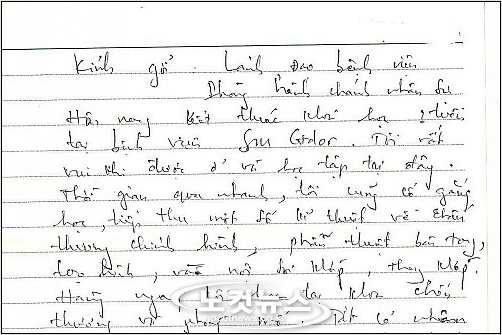 Kính gởi. Lãnh đạo bệnh viện
Phòng hành chánh nhân sự
Hôm nay kết thúc khoá học 2 tuần
tại bệnh viện Tôi rất
vui khi được ở và học tập tại đây.
Thời gian qua nhanh, tôi cũng cố gắng
học, tiếp thu một số kĩ thuật về chấn
thương chỉnh hình, phẫu thuật bàn tay,
tạo hình, nội soi khớp, thay khớp.
Hàng ngày tôi tại khoa chấn
thương và phòng mổ. Rất có nhiều
노컷뉴스